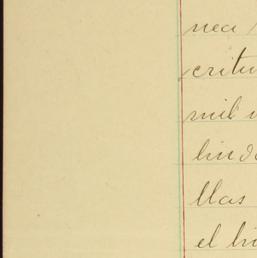 nea
critu
mil
lind
llas
el li